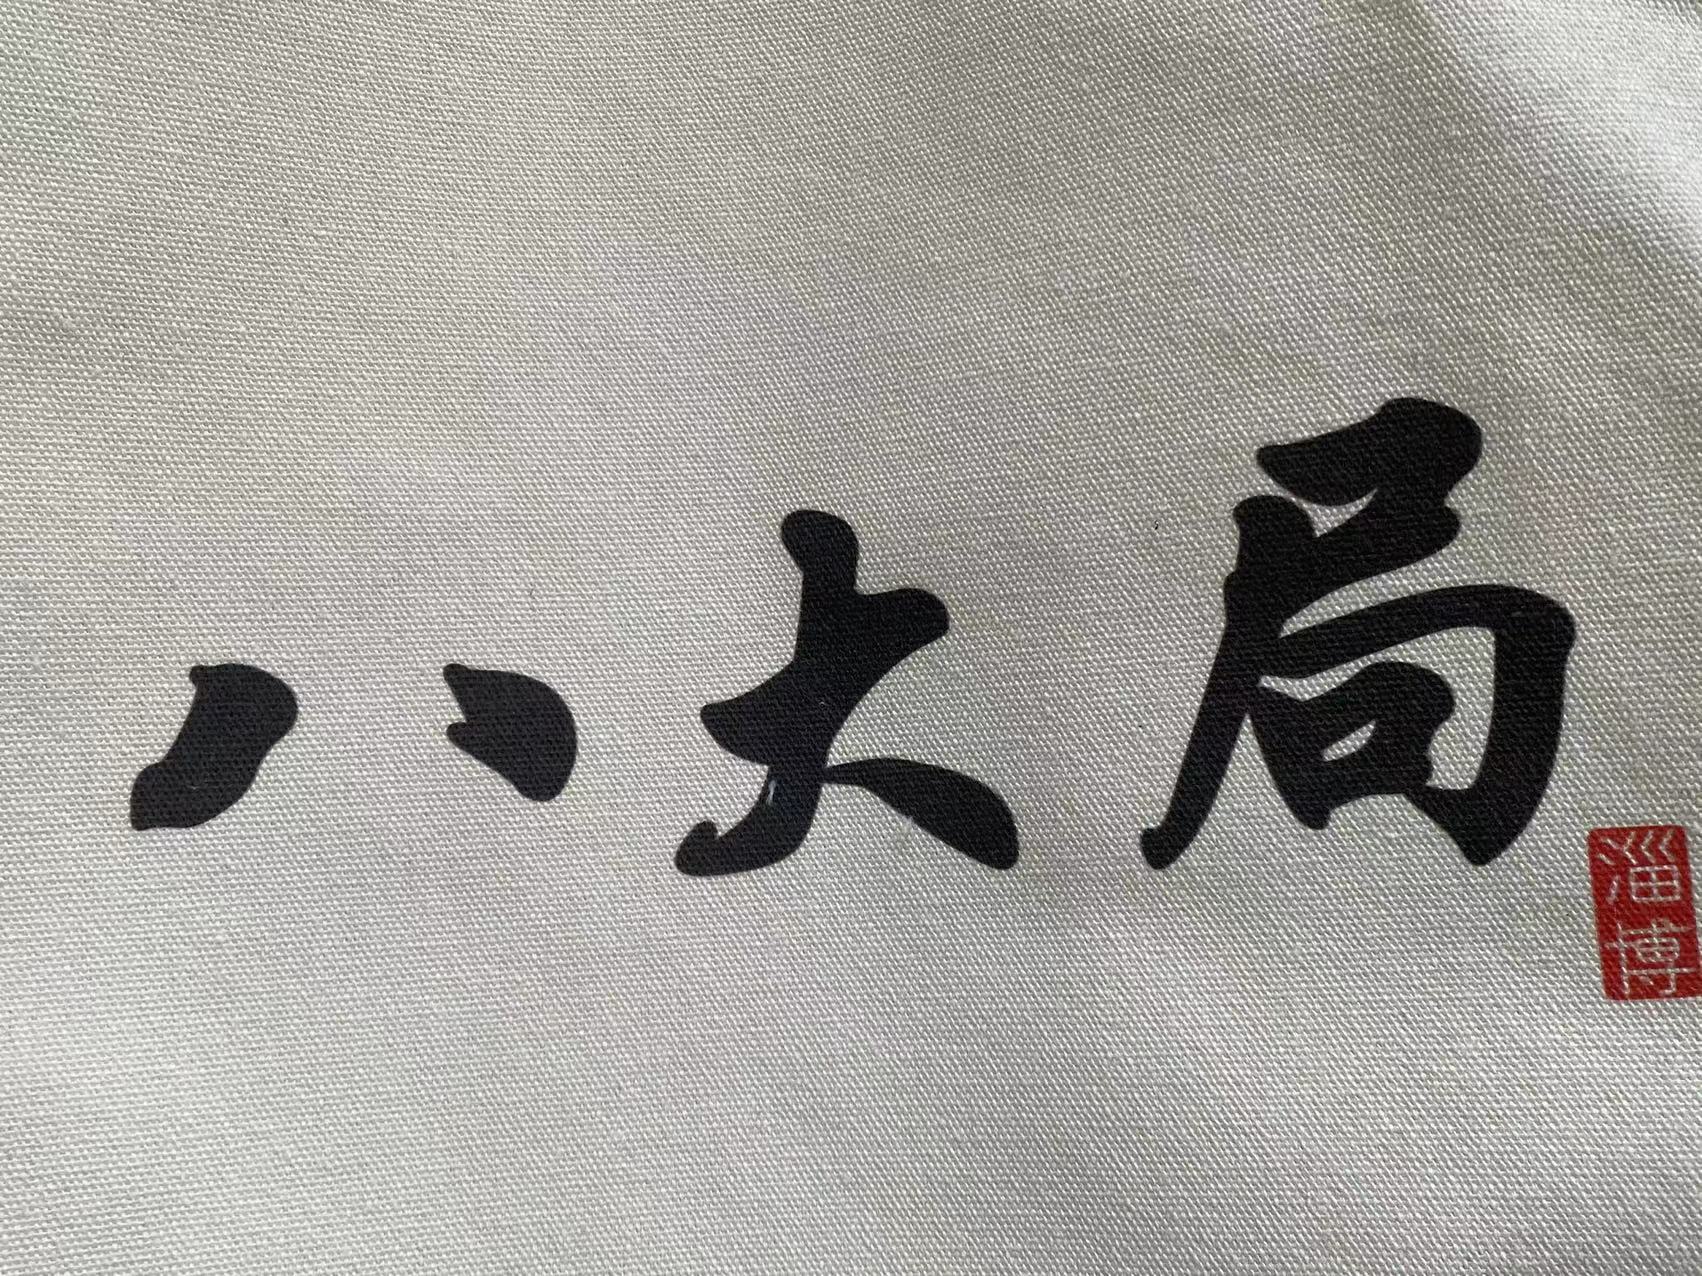 八大局
淄博